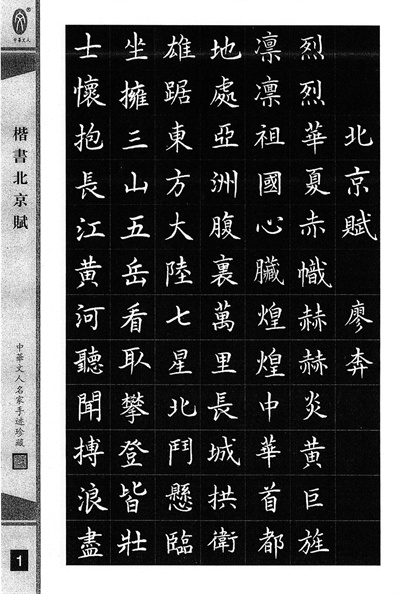 北京賦 廖奔
烈烈華夏赤幟赫赫炎黃巨旌
凛凛祖國心臟煌煌中華首都
地處亞洲腹裏萬里長城拱衛
雄踞東方大陸七星北鬥懸臨
坐擁三山五岳看取攀登皆壯
士懷抱長江黃河聽聞搏浪盡
中華文人
楷書北京賦
中華文人名家手迹珍藏
1